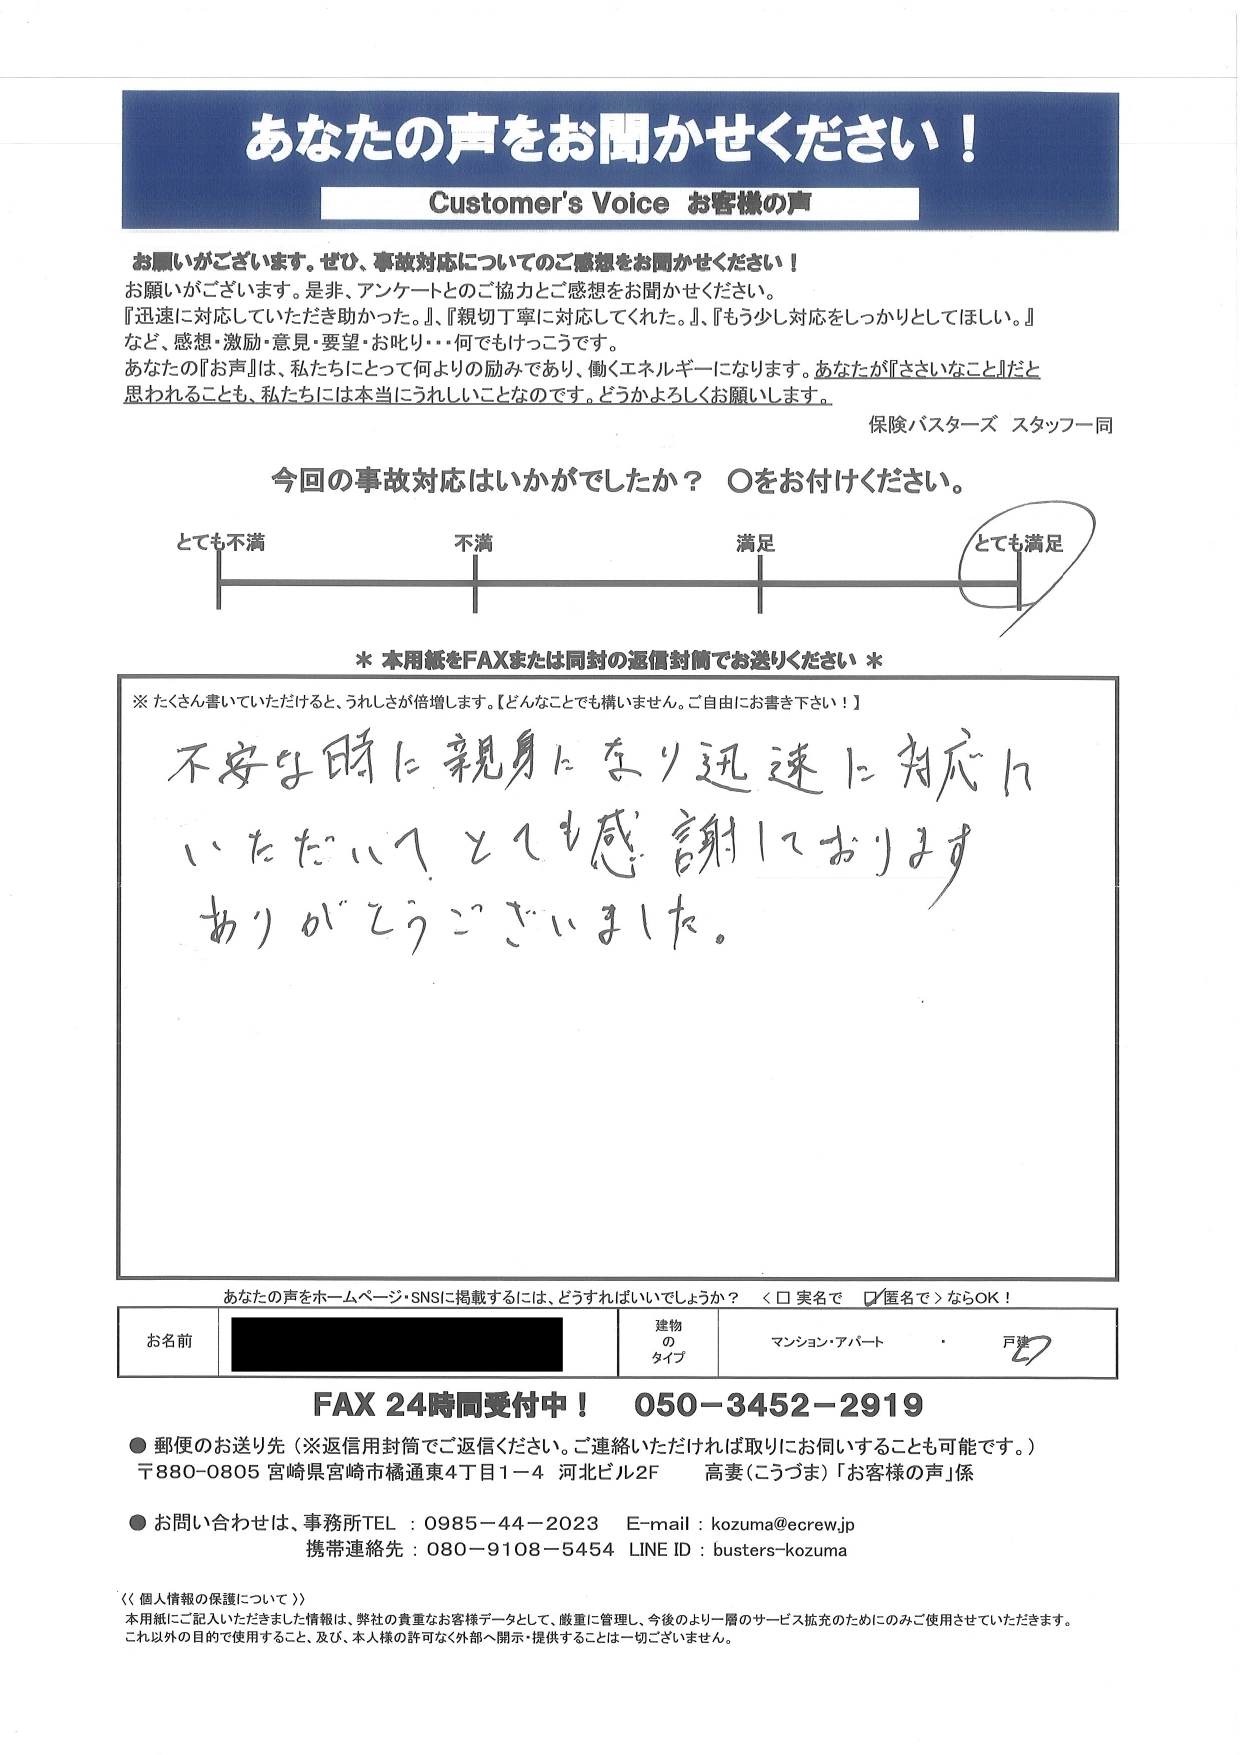 あなたの声をお聞かせください！
Customer's Voice お客様の声
お願いがございます。ぜひ、事故対応についてのご感想をお聞かせください！
お願いがございます。是非、アンケートとのご協力とご感想をお聞かせください。
『迅速に対応していただき助かった。』、『親切丁寧に対応してくれた。』、『もう少し対応をしっかりとしてほしい。』
など、感想・激励・意見・要望・お叱り・・・何でもけっこうです。
あなたの『お声』は、私たちにとって何よりの励みであり、働くエネルギーになります。あなたが『ささいなこと』だと
思われることも、私たちには本当にうれしいことなのです。どうかよろしくお願いします。
保険バスターズ スタッフ一同
今回の事故対応はいかがでしたか？ 〇をお付けください。
とても不満 不満 満足 とても満足
＊ 本用紙をFAXまたは同封の返信封筒でお送りください ＊
※ たくさん書いていただけると、うれしさが倍増します。【どんなことでも構いません。ご自由にお書き下さい！】
不安な時に親身になり迅速に対応に
いただいて とても感謝しております
ありがとうございました。
あなたの声をホームページ・SNSに掲載するには、どうすればいいでしょうか？ ＜□ 実名で ☑匿名で＞ならOK！
お名前 建物のタイプ マンション・アパート ・ 戸建
FAX 24時間受付中！ 050－3452－2919
● 郵便のお送り先（※返信用封筒でご返信ください。ご連絡いただければ取りにお伺いすることも可能です。）
〒880-0805 宮崎県宮崎市橘通東4丁目1－4 河北ビル2F 高妻（こうづま）「お客様の声」係
● お問い合わせは、事務所TEL ： 0985－44－2023 E-mail : kozuma@ecrew.jp
携帯連絡先 ： 080－9108－5454 LINE ID : busters-kozuma
《 個人情報の保護について 》
本用紙にご記入いただきました情報は、弊社の貴重なお客様データとして、厳重に管理し、今後のより一層のサービス拡充のためにのみご使用させていただきます。
これ以外の目的で使用すること、及び、本人様の許可なく外部へ開示・提供することは一切ございません。